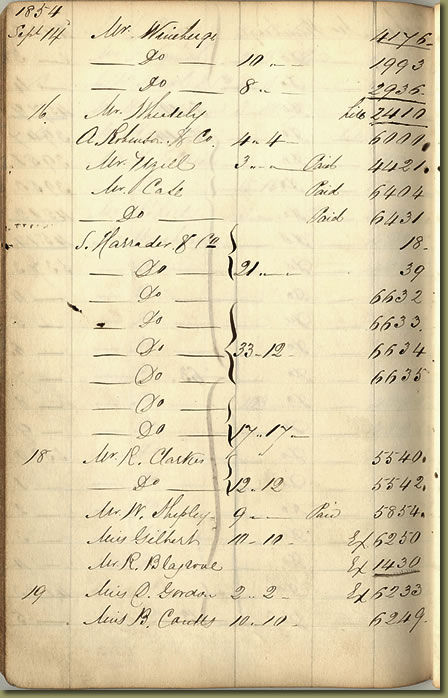 1854
Sept 14 Mr. 4176
Do 10 " 1993
Do 8 " 2936
16 Mr. Wheatly 2410
A. Robertson & Co. 4 " 4 6000
Mr. 3 " Paid 4421
Mr. Case Paid 6404
Do Paid 6431
S. Harrader & Co 18
Do 21 " 39
Do 6632
Do 6633
Do 33 " 12 6634
Do 6635
Do
Do 17 " 17 "
18 Mr. R. Clarke 5540
Do 12 " 12 5542
Mr. W. Shipley 9 " Paid 5854
Miss Gilbert 10 " 10 Ex 6250
Mr R. Blagrove Ex 1430
19 Miss C. Gordon 2 " 2 Ex 6233
Miss B. Coutts 10 " 10 6249